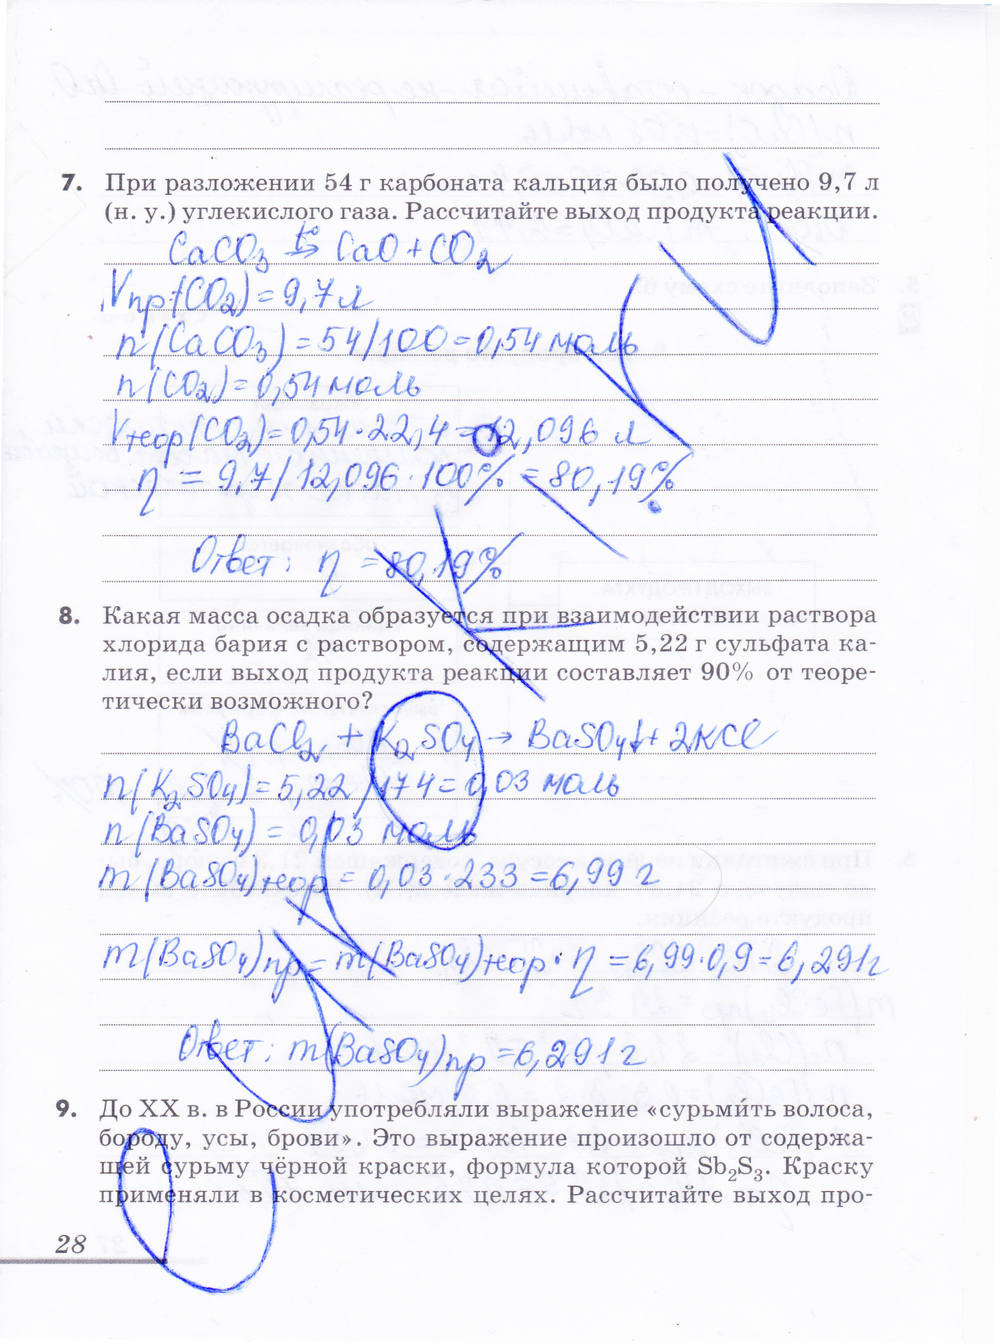 7. При разложении 54 г карбоната кальция было получено 9,7 л
(н. у.) углекислого газа. Рассчитайте выход продукта реакции.
CaCO₃ t° ⇉ CaO + CO₂
Vпр(CO₂) = 9,7 л
n(CaCO₃) = 54/100 = 0,54 моль
n(CO₂) = 0,54 моль
Vтеор(CO₂) = 0,54 · 22,4 = 12,096 л
η = 9,7/12,096 · 100% = 80,19%
Ответ: η = 80,19%
8. Какая масса осадка образуется при взаимодействии раствора
хлорида бария с раствором, содержащим 5,22 г сульфата ка-
лия, если выход продукта реакции составляет 90% от теоре-
тически возможного?
BaCl₂ + K₂SO₄ → BaSO₄↓ + 2KCl
n(K₂SO₄) = 5,22/174 = 0,03 моль
n(BaSO₄) = 0,03 моль
m(BaSO₄)теор = 0,03 · 233 = 6,99 г
m(BaSO₄)пр = m(BaSO₄)теор · η = 6,99 · 0,9 = 6,291 г
Ответ: m(BaSO₄)пр = 6,291 г
9. До XX в. в России употребляли выражение «сурьми́ть волоса,
бороду, усы, брови». Это выражение произошло от содержа-
щей сурьму чёрной краски, формула которой Sb₂S₃. Краску
применяли в косметических целях. Рассчитайте выход про-
28